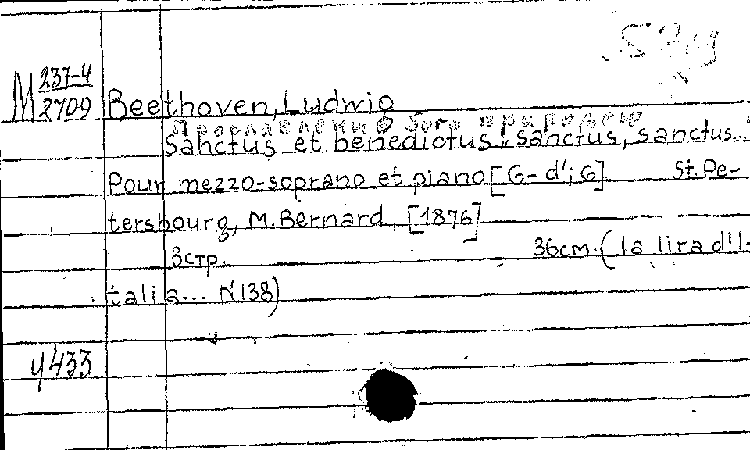 M 237-4
2709
Beethoven, Ludwig
Прославление Бога природою
Sanctus et benedictus: sanctus, sanctus...
Pour mezzo-soprano et piano [G-d'; G] St. Pe-
tersbourg, M. Bernard, [1876]
3стр. 36см. (La lira d'I-
talia... N138)
У433